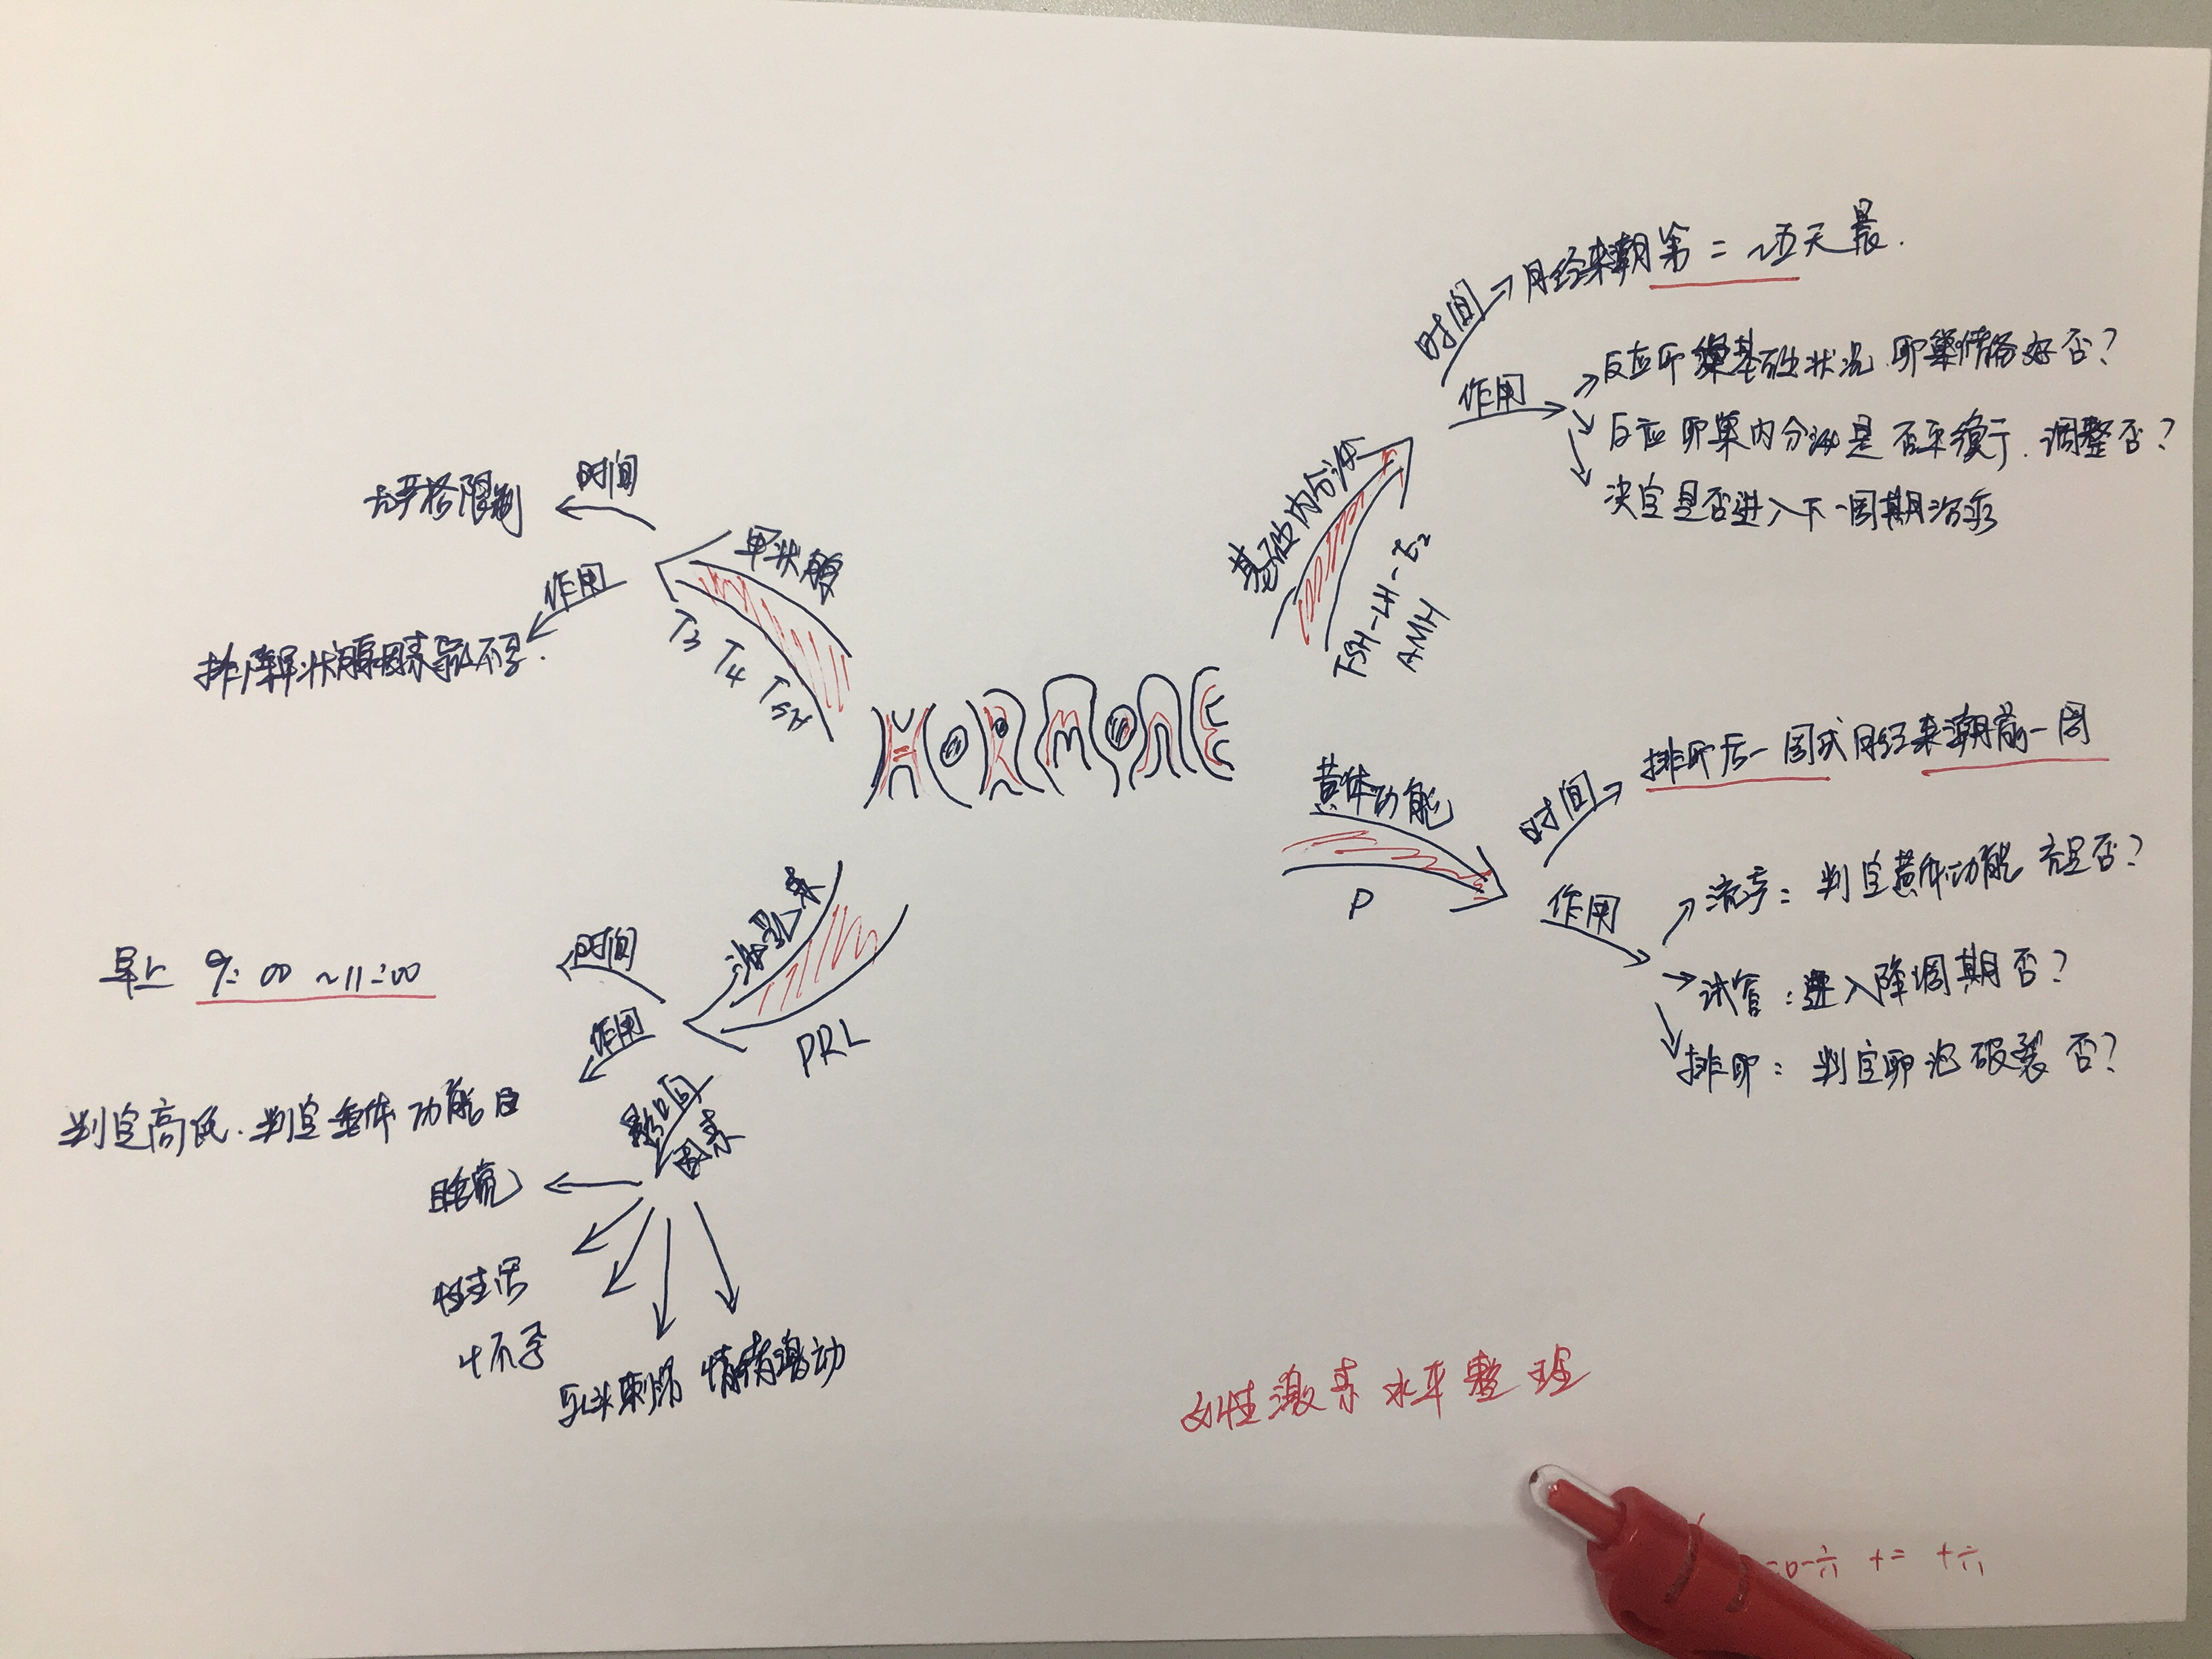 HORMONE
基础内分泌
FSH-LH-E2
AMH
时间
月经来潮第二~五天晨.
作用
反应卵巢基础状况.卵巢储备好否?
反应卵巢内分泌是否平衡.调整否?
决定是否进入下一周期治疗
黄体功能
P
时间
排卵后一周或月经来潮前一周
作用
流产:判定黄体功能充足否?
试管:进入降调期否?
排卵:判定卵泡破裂否?
甲状腺
T3 T4
时间
无严格限制
作用
排除甲状腺因素导致不孕.
泌乳素
PRL
时间
早上 9:00~11:00
作用
判定高低.判定垂体功能
影响
因素
睡觉
性生活
不孕
乳头刺激
情绪激动
女性激素水平整理
十二 十六